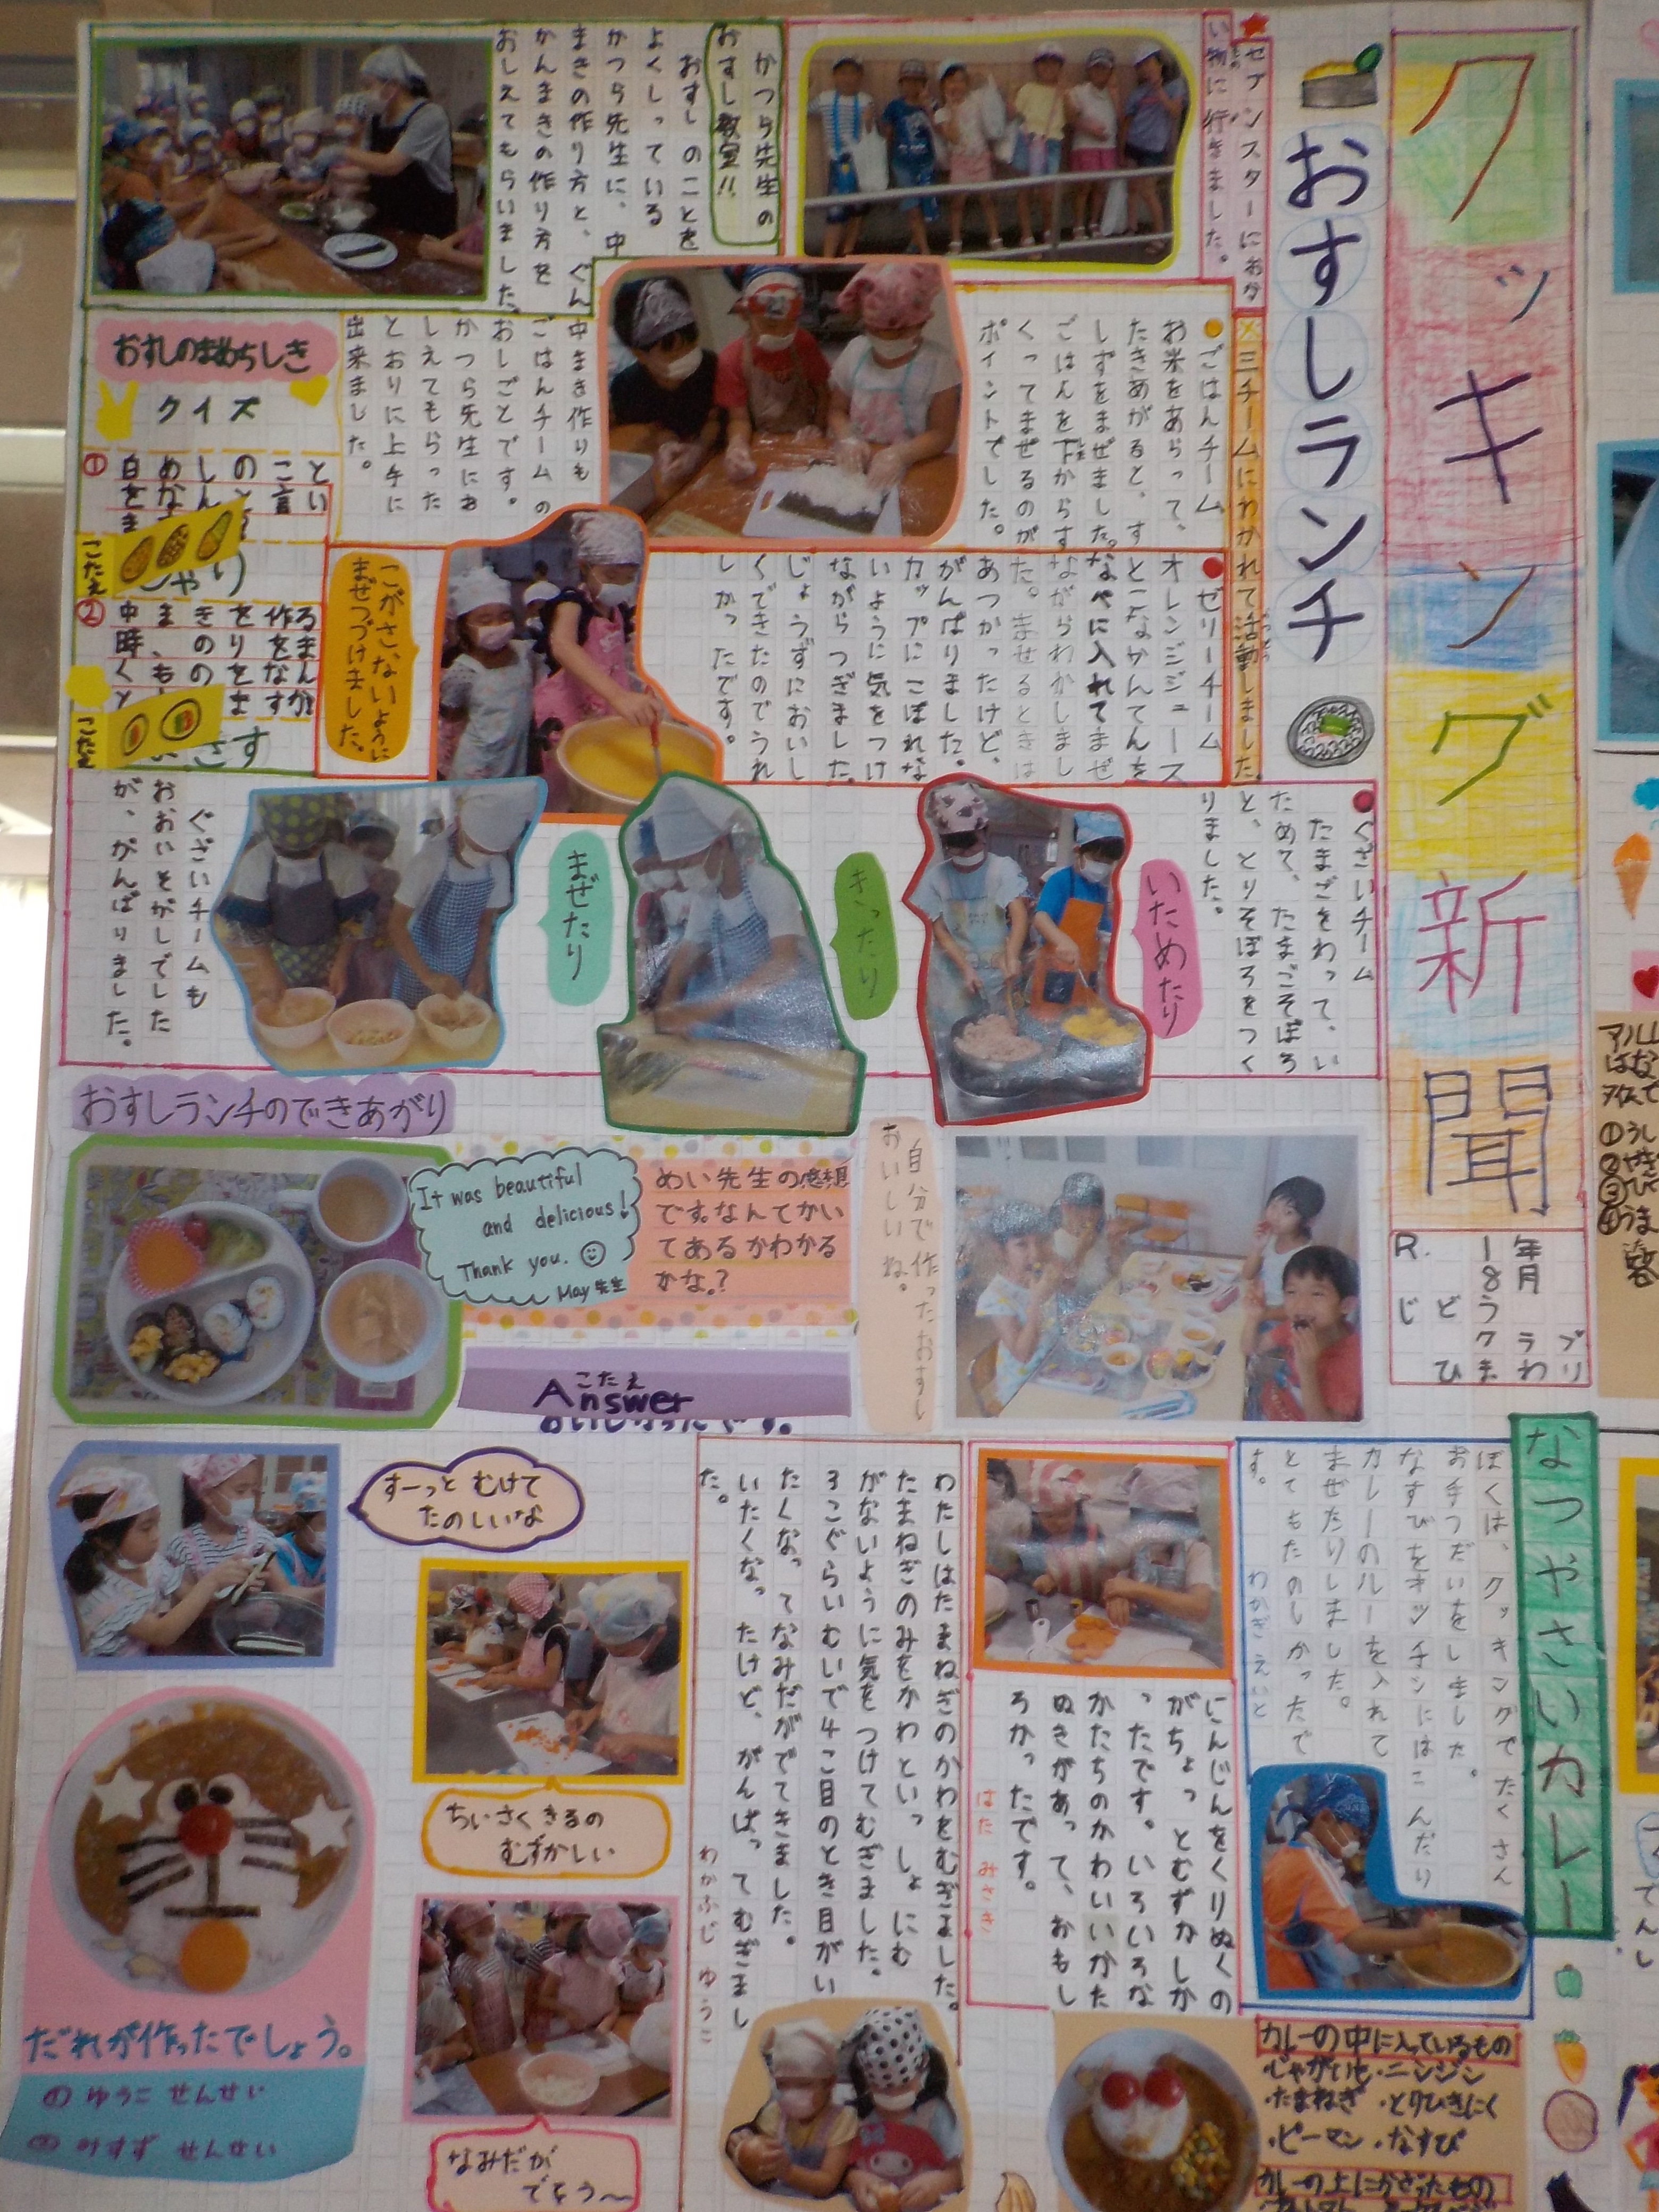 クッキング新聞
R.1年8月
どうクラブ
ひまわり
おすしランチ
★セブンスターにおかい物に行きました。
※三チームにわかれて活動しました。
かつら先生の
おすし教室!!
おすしのことを
よくしっている
かつら先生に、中
まきの作り方と、ぐん
かんまきの作り方を
おしえてもらいました。
●ごはんチーム
お米をあらって、
たきあがると、す
しずをまぜました。
ごはんを下からす
くってまぜるのが
ポイントでした。
中まき作りも
ごはんチームの
おしごとです。
かつら先生にお
しえてもらった
とおりに上手に
出来ました。
おすしのまめちしき
クイズ
①
白めしのこと
をなんと言い
ま
こたえ
しゃり
②
中まきを作る
時、のりをま
くものをなん
と
ますか
こたえ
す
●ゼリーチーム
オレンジジュース
とこなかんてんを
なべに入れてまぜ
ながらわかしまし
た。まぜるときは
あつかったけど、
がんばりました。
カップにこぼれな
いように気をつけ
ながらつぎました。
じょうずにおいし
くできたのでうれ
しかったです。
こがさないように
まぜつづけました。
●ぐざいチーム
たまごをわって、い
ためて、たまごそぼろ
と、とりそぼろをつく
りました。
いためたり
きったり
まぜたり
ぐざいチームも
おおいそがしでした
が、がんばりました。
おすしランチのできあがり
It was beautiful
and delicious!
Thank you. ☺
May先生
めい先生の感想
です。なんてかい
てあるかわかる
かな?
こたえ
Answer
自分で作ったおすし
おいしいね。
なつやさいカレー
ぼくは、クッキングでたくさん
お手つだいをしました。
なすびをキッチンにはこんだり
カレーのルーを入れて
まぜたりしました。
とてもたのしかったで
す。
わかぎ えいと
にんじんをくりぬくの
がちょっとむずかしか
ったです。いろいろな
かたちのかわいいかた
ぬきがあって、おもし
ろかったです。
はた みさき
わたしはたまねぎのかわをむぎました。
たまねぎのみをかわといっしょにむ
がないように気をつけてむぎました。
3こぐらいむいで4こ目のとき目がい
たくなってなみだがでてきました。
いたくなったけど、がんばってむぎまし
た。
わかふじ ゆうこ
すーっと むけて
たのしいな
ちいさくきるの
むずかしい
なみだが
でそう〜
だれが作ったでしょう。
① ゆうこ せんせい
② みすず せんせい
カレーの中に入っているもの
・じゃがいも・ニンジン
・たまねぎ・とりひきにく
・ピーマン・なすび
カレーの上にかざったもの